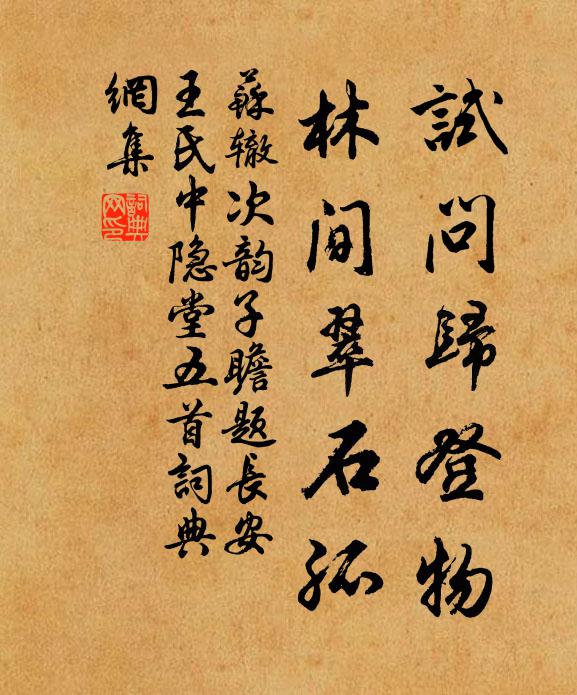 試問歸登物
林间翠石孤
蘇辙次韵子瞻题長安
王氏中隐堂五首詞典
網集
詞典
网印